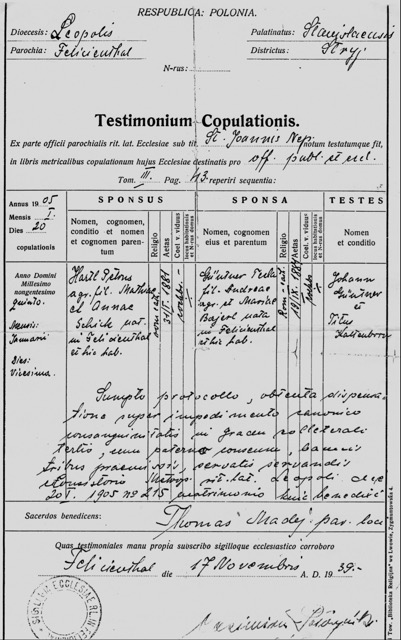 RESPUBLICA: POLONIA.
Dioecesis: Leopolis
Palatinatus: Stanislaensis
Parochia: Felicienthal
Districtus: Stryj
N-rus:
Testimonium Copulationis.
Ex parte officii parochialis rit. lat. Ecclesiae sub tit. St. Joannis Nep. notum testatumque fit,
in libris metricalibus copulationum hujus Ecclesiae destinatis pro off. publ. et eccl.
Tom. III. Pag. 43. reperiri sequentia:
Annus 1905
Mensis I.
Dies 20
copulationis
SPONSUS
Nomen, cognomen, conditio et nomen et cognomen parentum
Religio
Aetas
Coel. v. viduus
SPONSA
Nomen, cognomen eius et parentum
Religio
Aetas
Coel. v. vidua
TESTES
Nomen et conditio
Anno Domini
Millesimo
nongentesimo
quinto.
Mensis:
Januarii
Dies:
Vicesima.
Hartl Petrus
agr. fil. Mathiae
et Annae
Schick nat.
in Felicienthal
et hic hab.
rom. cat.
1881
fil. Andreae
agr. et Mariae
nata
in Felicienthal
et hic hab.
Rom. cat.
Johann
et
Titus
Kaltenborn
Sumpto protocollo, obtenta dispensa-
tione super impedimento canonico
consanguinitatis in gradu collaterali
tertio, cum paterno consensu, bannis
tribus praemissis, servatis servandis
Consistorio Metrop. rit. lat. Leopoli
20/I. 1905 No 215 matrimonio huic benedixit
Sacerdos benedicens: Thomas Madej par. loci
Quas testimoniales manu propia subscribo sigilloque ecclesiastico corroboro
Felicienthal die 17 Novembris A. D. 1939.-
Tow. „Biblioteka Religijna” we Lwowie, Zygmuntowska 4.